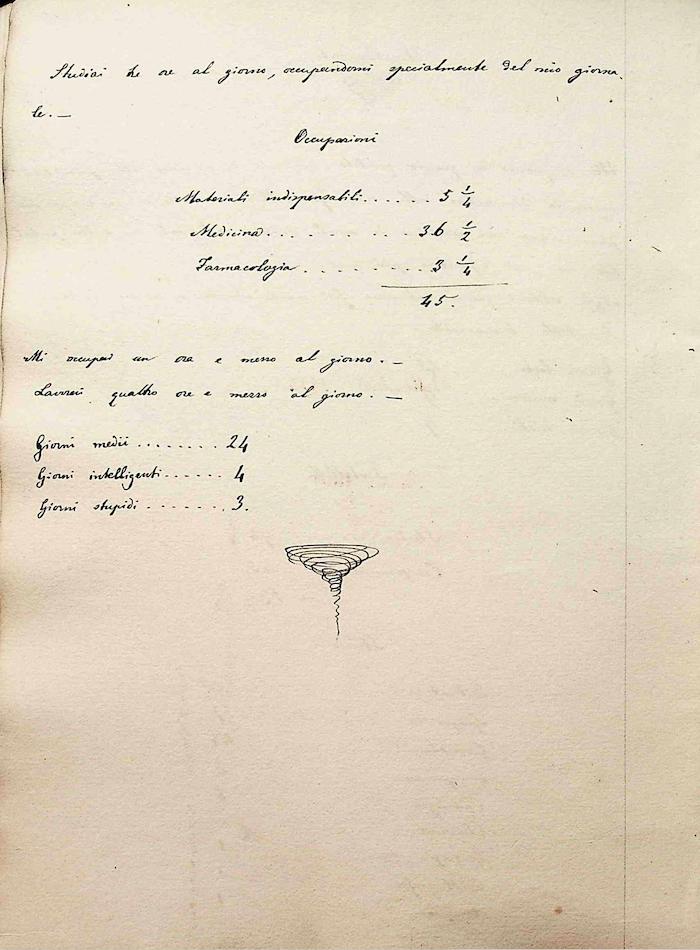 Studiai tre ore al giorno, occupandomi specialmente del mio giorna
le. —
Occupazioni
Materiali indispensabili...... 5 1/4
Medicina........... 36 1/2
Farmacologia......... 3 1/4
45.
Mi occupai un ora e mezzo al giorno. —
Lavorai quattro ore e mezzo al giorno. —
Giorni medii........ 24
Giorni intelligenti...... 4
Giorni stupidi....... 3.